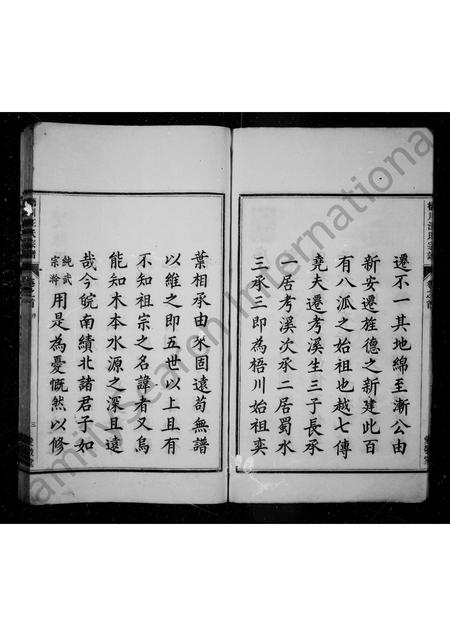 遷不一其地綿至漸公由
新安遷旌德之新建此百
有八派之始祖也越七傳
堯夫遷考溪生三子長承
一居考溪次承二居蜀水
三承三即為梧川始祖奕
葉相承由來固遠苟無譜
以維之即五世以上且有
不知祖宗之名諱者又烏
能知木本水源之深且遠
哉今皖南績北諸君子如
純武
宗瀚
用是為憂慨然以修
三